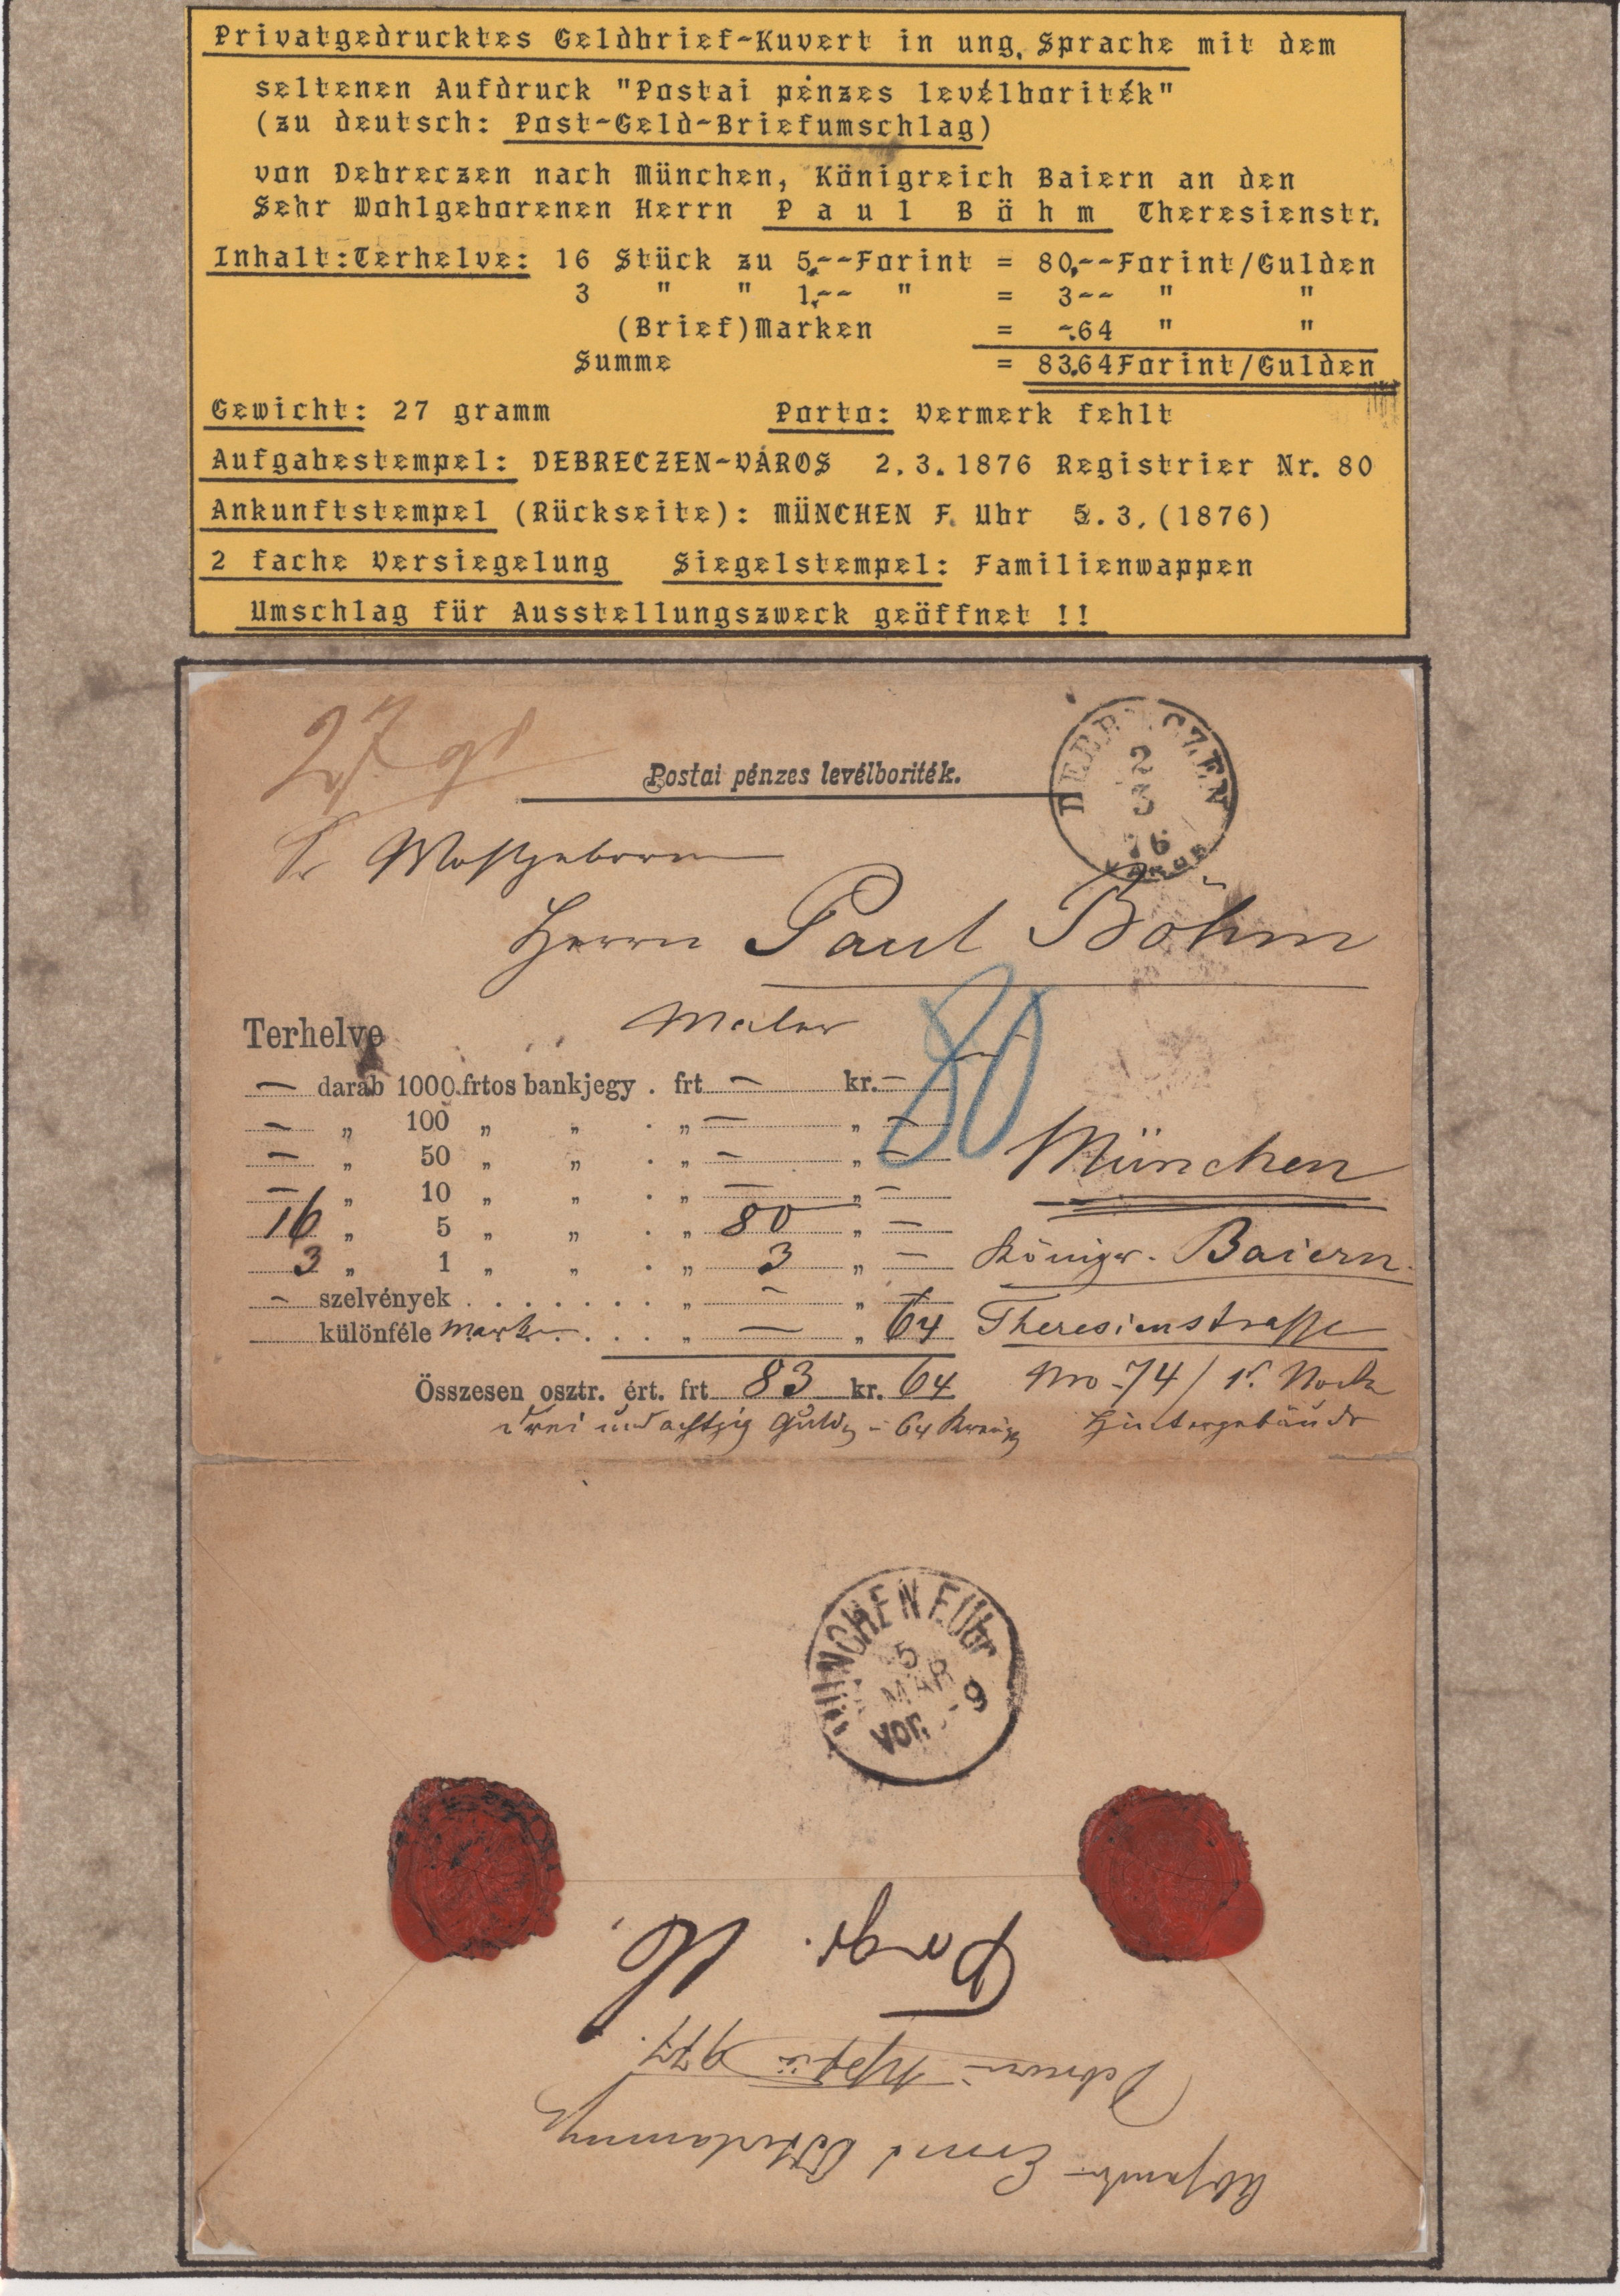 Privatgedrucktes Geldbrief-Kuvert in ung. Sprache mit dem
seltenen Aufdruck "Postai pénzes levélboriték"
(zu deutsch: Post-Geld-Briefumschlag)
von Debreczen nach München, Königreich Baiern an den
Sehr Wohlgeborenen Herrn Paul Böhm Theresienstr.
Inhalt:Terhelve: 16 Stück zu 5,--Forint = 80,--Forint/Gulden
3 " " 1,-- " = 3-- " "
(Brief)Marken = -.64 " "
Summe = 83.64Forint/Gulden
Gewicht: 27 gramm Porto: Vermerk fehlt
Aufgabestempel: DEBRECZEN-VÁROS 2.3.1876 Registrier Nr. 80
Ankunftstempel (Rückseite): MÜNCHEN F. Uhr 5.3.(1876)
2 fache Versiegelung Siegelstempel: Familienwappen
Umschlag für Ausstellungszweck geöffnet !!
27 gr
Postai pénzes levélboriték.
DEBRECZEN
2
3
76
VÁROS
Sr Wohlgeboren
Herrn Paul Böhm
Maler
80
Terhelve
— darab 1000 frtos bankjegy . frt — kr. —
— „ 100 „ „ . „ — „ —
— „ 50 „ „ . „ — „ —
— „ 10 „ „ . „ — „ —
16 „ 5 „ „ . „ 80 „ —
3 „ 1 „ „ . „ 3 „ —
— szelvények . . . . . . . „ — „ —
különféle Marken . . . . „ — „ 64
Összesen osztr. ért. frt 83 kr. 64
drei und achtzig Guld. – 64 Kreuz
München
Königr. Baiern.
Theresienstrasse
Nro 74 / 1r. Stock
Hintergebäude
MÜNCHEN F. Uhr
5
MAR
Vor. 9
Absender Ernst
977.